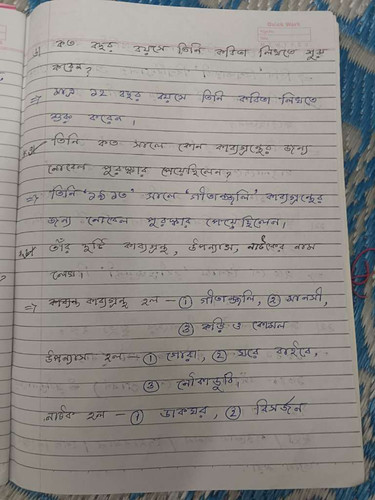 কত বছর বয়সে তিনি কবিতা লিখতে শুরু
করেন?
⇒ মাত্র ১২ বছর বয়সে তিনি কবিতা লিখতে
শুরু করেন।
তিনি কত সালে কোন কাব্যগ্রন্থের জন্য
নোবেল পুরস্কার পেয়েছিলেন?
⇒ তিনি '১৯১৩' সালে 'গীতাঞ্জলি' কাব্যগ্রন্থের
জন্য নোবেল পুরস্কার পেয়েছিলেন।
তাঁর দুটি কাব্যগ্রন্থ, উপন্যাস, নাটকের নাম
লেখ।
⇒ কাব্যগ্রন্থ হল – ① গীতাঞ্জলি, ② মানসী,
③ কড়ি ও কোমল
উপন্যাস হল – ① গোরা, ② ঘরে বাইরে,
③ নৌকাডুবি,
নাটক হল – ① ডাকঘর, ② বিসর্জন